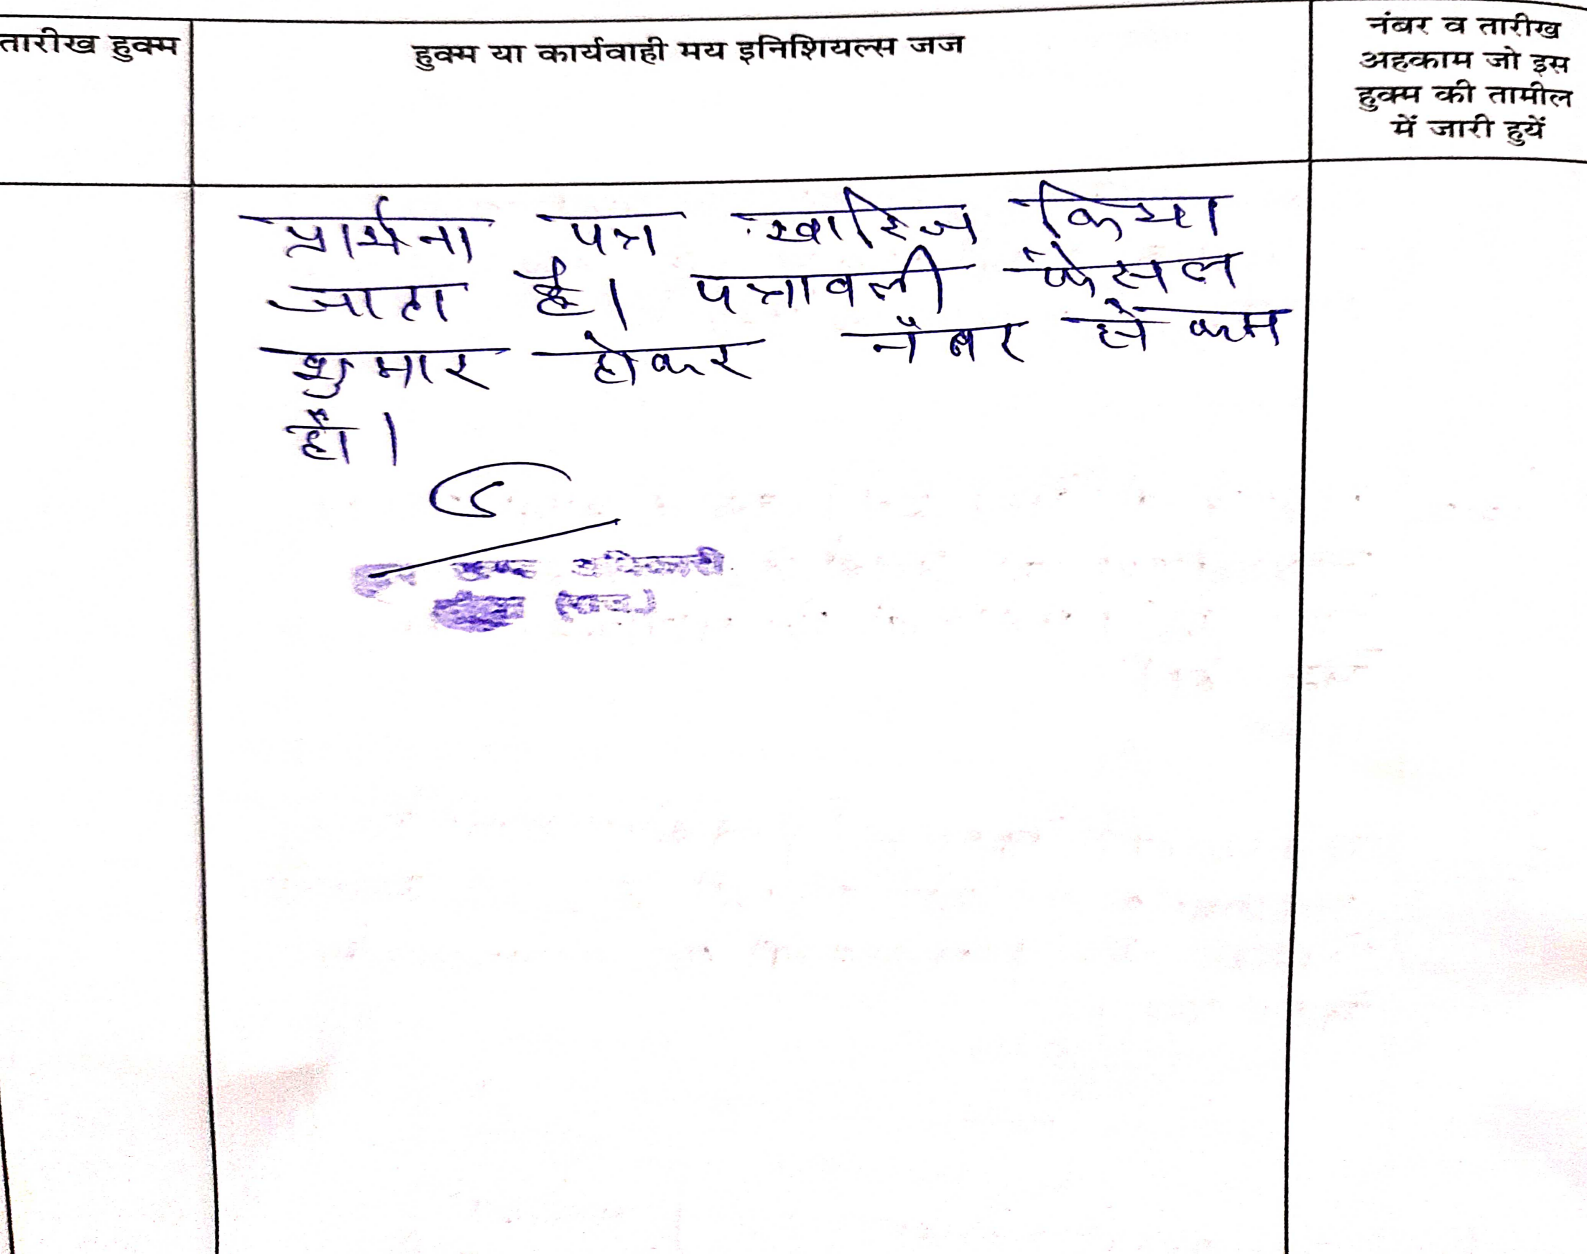 तारीख हुक्म
हुक्म या कार्यवाही मय इनिशियल्स जज
नंबर व तारीख
अहकाम जो इस
हुक्म की तामील
में जारी हुयें
प्रार्थना पत्र खारिज किया
जाता है। पत्रावली फैसल
शुमार होकर नंबर से कम
हो।
खण्ड अधिकारी
(राज.)